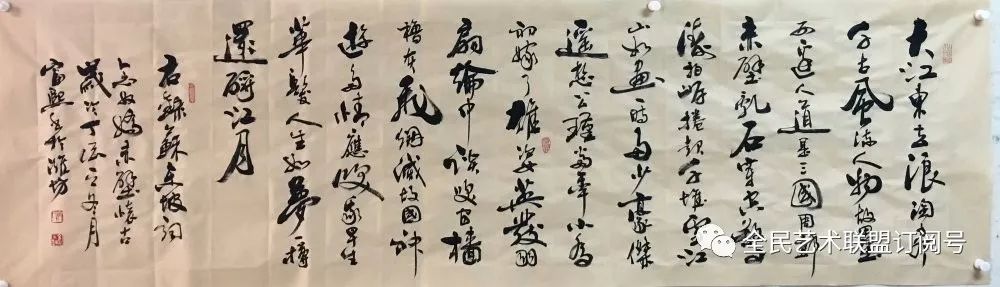 大江東去浪淘盡
千古風流人物故壘
西邊人道是三國周郎
赤壁亂石穿空驚
濤拍岸捲起千堆雪江
山如畫一時多少豪傑
遥想公瑾當年小喬
初嫁了雄姿英發羽
扇綸巾談笑間檣
櫓灰飛烟滅故國神
遊多情應笑我早生
華髮人生如夢一樽
還酹江月
右錄蘇東坡詞
念奴嬌赤壁懷古
歲次丁酉之冬月
富熙書於濰坊
全民艺术联盟订阅号